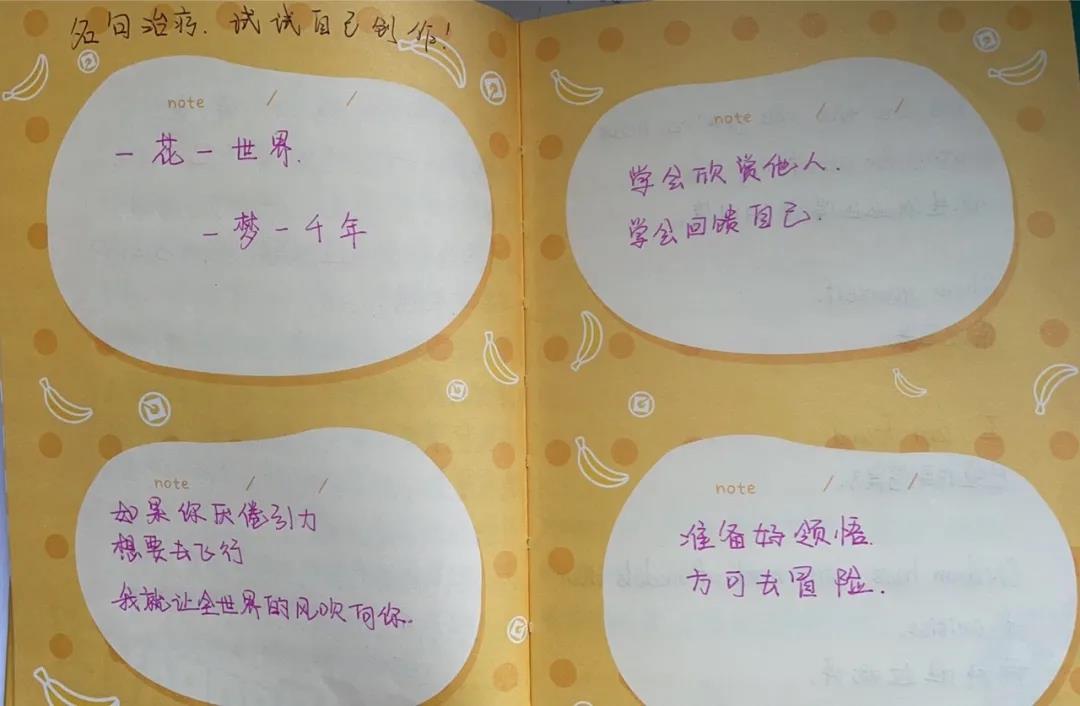 名句治疗.试试自己创作!
note / /
一花一世界.
一梦一千年
note / /
学会欣赏他人.
学会回馈自己.
note / /
如果你厌倦引力
想要去飞行
我就让全世界的风吹向你.
note / /
准备好领悟.
方可去冒险.